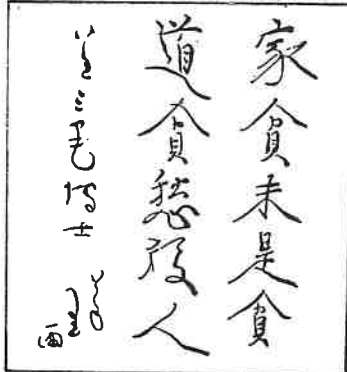 家貧未是貧
道貧愁殺人
博士